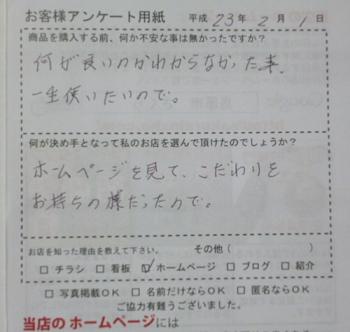 お客様アンケート用紙 平成 23 年 2 月 1 日
商品を購入する前、何か不安な事は無かったですか?
何が良いのかわからなかった事、
一生使いたいので。
何が決め手となって私のお店を選んで頂けたのでしょうか?
ホームページを見て、こだわりを
お持ちの様だったので。
お店を知った理由を教えて下さい。 その他( )
□ チラシ □ 看板 ☑ ホームページ □ ブログ □ 紹介
□ 写真掲載OK □ 名前だけならOK □ 匿名ならOK
ご協力有難うございました。
当店の ホームページには